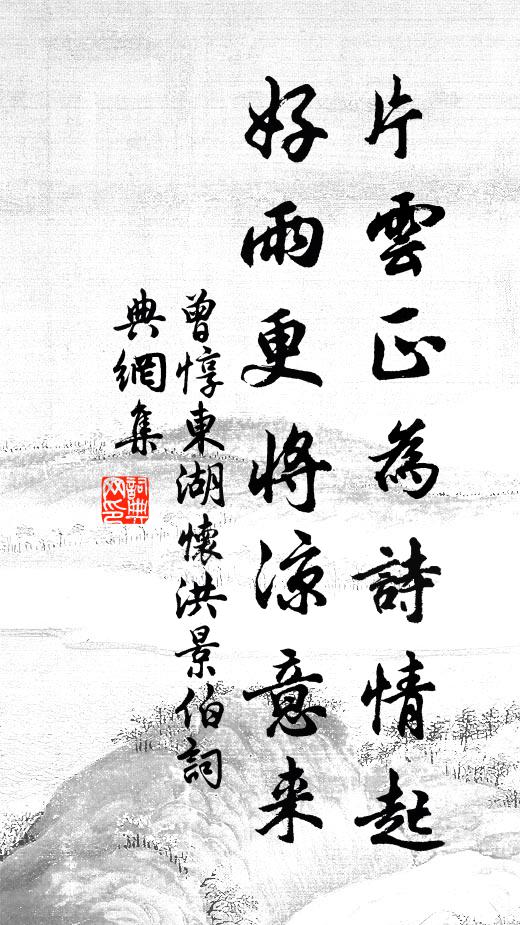 片雲正為詩情起
好雨更將涼意来
曾惇東湖懷洪景伯詞
典網集
詞典
网印